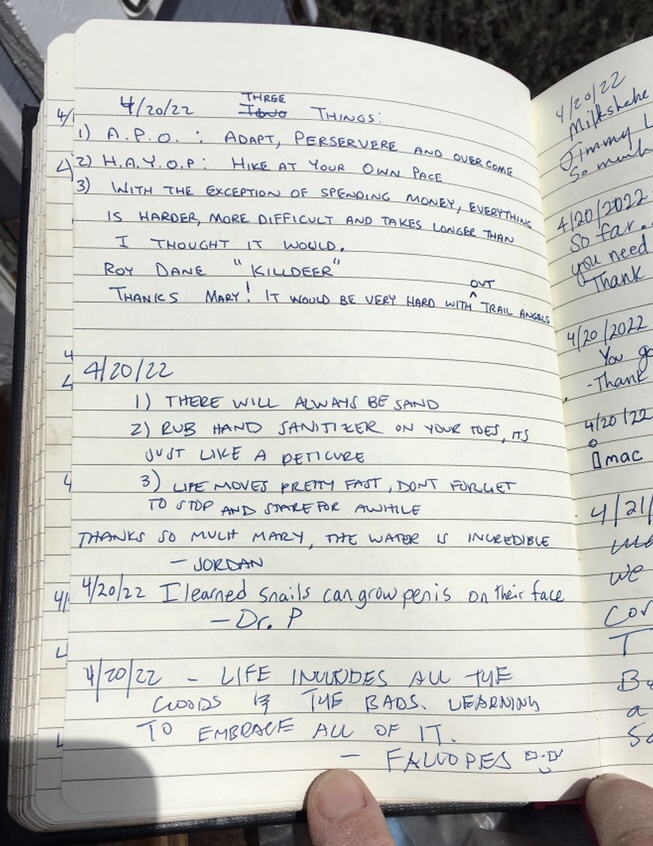 4/20/22 THREE THINGS:
1) A.P.O. : ADAPT, PERSERVERE AND OVERCOME
2) H.A.Y.O.P: HIKE AT YOUR OWN PACE
3) WITH THE EXCEPTION OF SPENDING MONEY, EVERYTHING
IS HARDER, MORE DIFFICULT AND TAKES LONGER THAN
I THOUGHT IT WOULD.
ROY DANE "KILLDEER"
THANKS MARY! IT WOULD BE VERY HARD WITHOUT TRAIL ANGELS
4/20/22
1) THERE WILL ALWAYS BE SAND
2) RUB HAND SANITIZER ON YOUR TOES, ITS
JUST LIKE A PETICURE
3) LIFE MOVES PRETTY FAST, DONT FORGET
TO STOP AND STARE FOR AWHILE
THANKS SO MUCH MARY, THE WATER IS INCREDIBLE
- JORDAN
4/20/22 I learned snails can grow penis on their face
- Dr. P
4/20/22 - LIFE INCLUDES ALL THE
GOODS & THE BADS. LEARNING
TO EMBRACE ALL OF IT.
-
4/20/22
Milkshake
Jimmy L
So much
4/20/2022
So far..
you need
Thank
4/20/2022
You go
-Thank
4/20/22
mac
4/21/
we
Cor
T
B
a
So